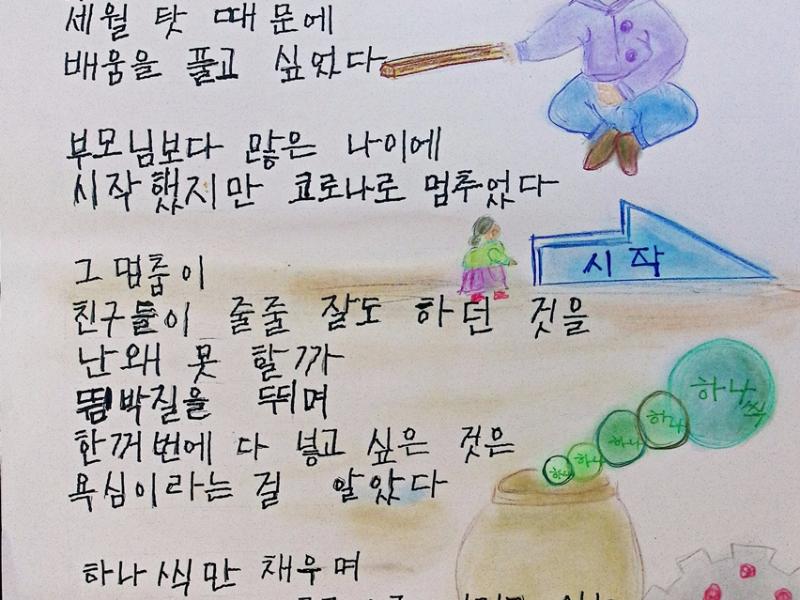 세월 탓 때문에
배움을 풀고 싶었다
부모님보다 많은 나이에
시작했지만 코로나로 멈추었다
시작
그 멈춤이
친구들이 줄줄 잘도 하던 것을
난 왜 못 할까
뜀박질을 뛰며
한꺼번에 다 넣고 싶은 것은
욕심이라는 걸 알았다
하나 하나 하나 하나 하나씩
하나씩만 채우며